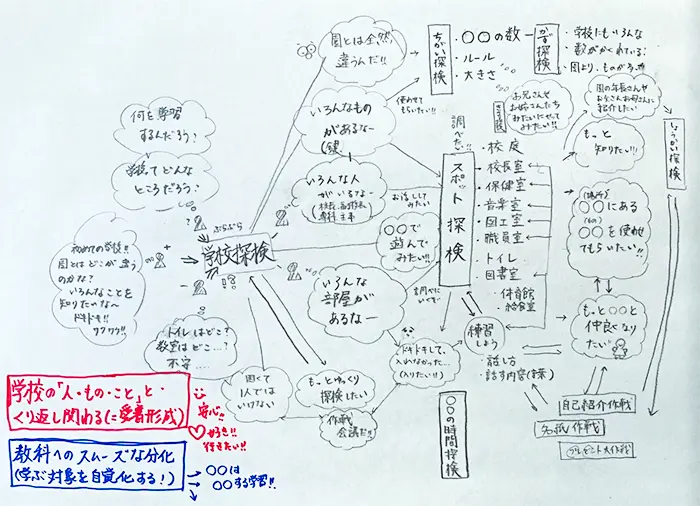 何を学習
するんだろう?
学校ってどんな
ところだろう?
初めての学校!!
園とはどこが違う
のかな?
いろんなことを
知りたいな~
ドキドキ!!
ワクワク!!
ぶらぶら
学校探検
トイレはどこ?
教室はどこ…?
不安……
園とは全然
違うんだ!!
いろんなもの
があるな~
(鍵
使わせて
もらいたい!!
いろんな人
がいるな~
お話して
みたい
〇〇で
遊んで
みたい!!
いろんな
部屋が
あるな~
調べに
いくぞ~
怖くて
1人では
いけない
もっとゆっくり
探検したい
作戦
会議だ!!
ドキドキして、
入れなかった…
(入りたい!!)
ちがい探検
・〇〇の数
・ルール
・大きさ
かず探検
・学校にもいろんな
数がかくれている!
・園より、ものが多い
お兄さんや
お姉さんたち
みたいになって
みたい!!
調べたい!!
スポット探検
・校庭
・校長室
・保健室
・音楽室
・図工室
・職員室
・トイレ
・図書室
・体育館
・給食室
練習
しよう
・話し方
・話す内容
〇〇の時間探検
園の年長さんや
お父さんお母さんに
紹介したい
もっと
知りたい!!!
(場所)
〇〇にある
(もの)
〇〇を使わせ
てもらいたい!!
もっと〇〇と
仲良くなり
たい
しょうかい探検
自己紹介作戦
名札作戦
プレゼント大作戦
学校の「人・もの・こと」と
くり返し関わる(=愛着形成)
安心!!
好き!!
行きたい!!
教科へのスムーズな分化
(学ぶ対象を自覚化する!)
→〇〇は
〇〇する学習!!